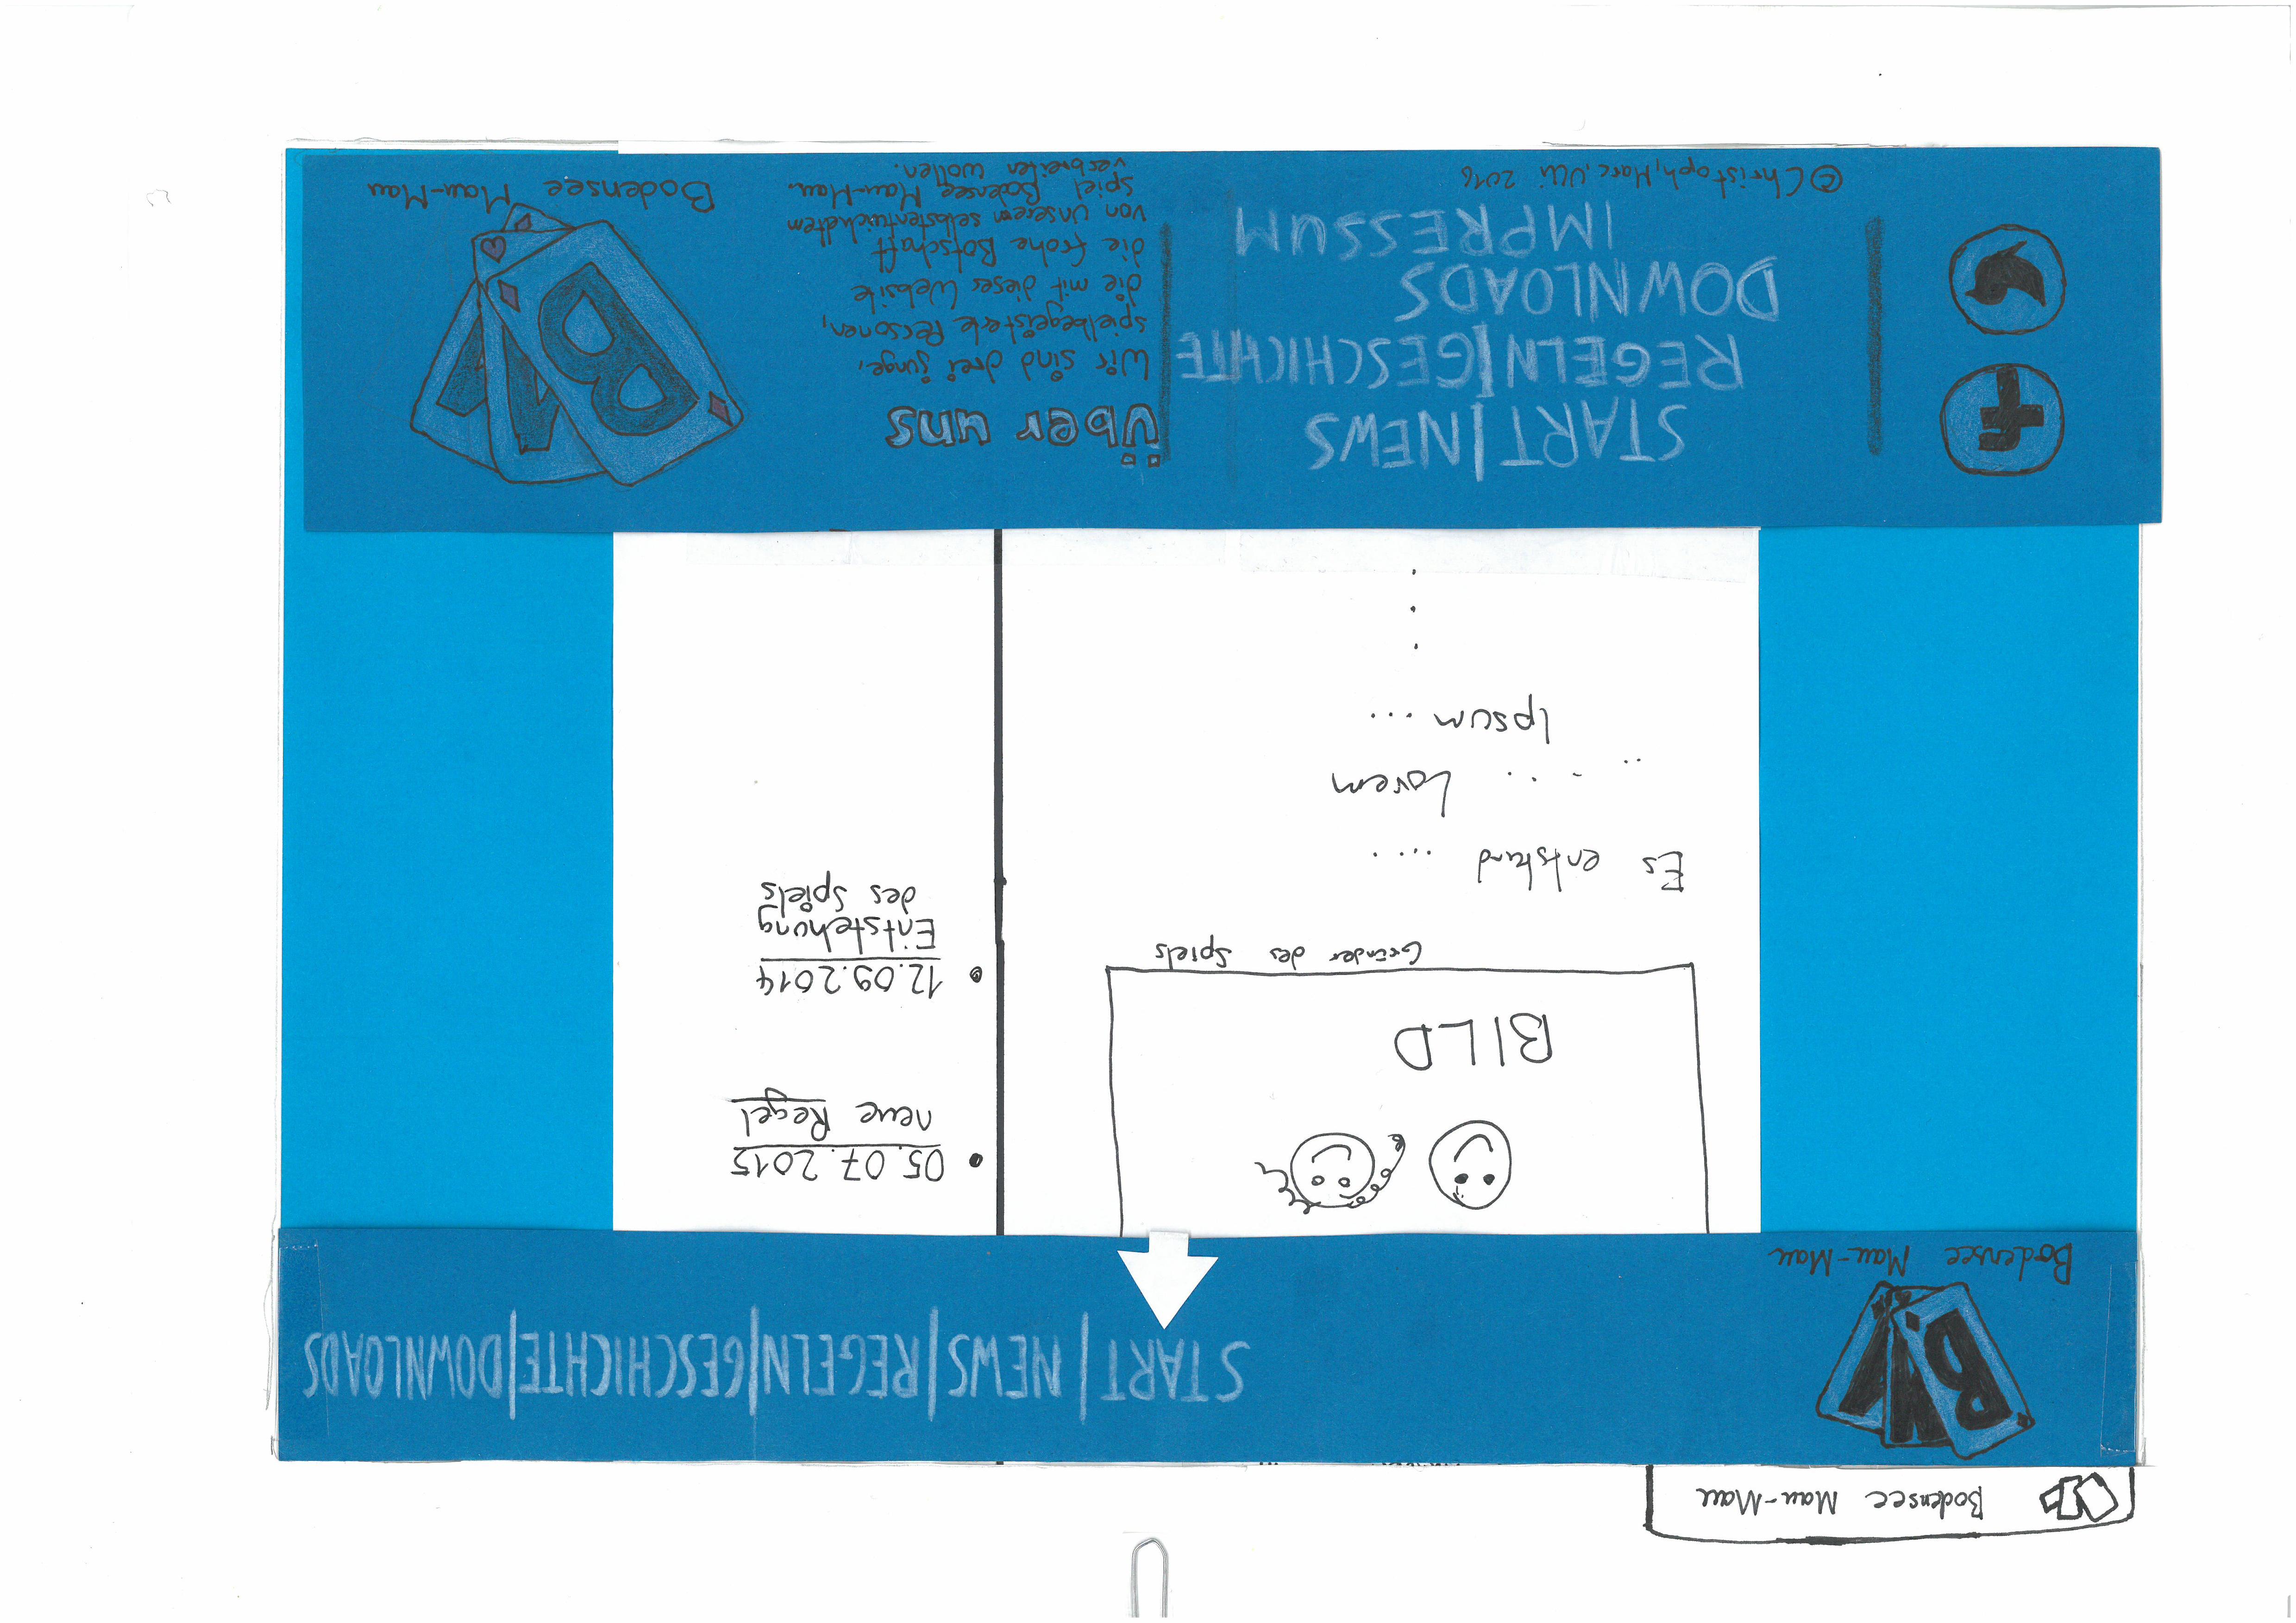 Bodensee Mau-Mau
BMM
Bodensee Mau-Mau
START | NEWS | REGELN | GESCHICHTE | DOWNLOADS
BILD
Gründer des Spiels
Es entstand ....
.. - .. Lorem
Ipsum ...
• 05.07.2015
neue Regel
• 12.09.2014
Entstehung
des Spiels
f
START | NEWS
REGELN | GESCHICHTE
DOWNLOADS
IMPRESSUM
© Christoph, Marc, Ulli 2016
Über uns
Wir sind drei junge,
spielbegeisterte Personen,
die mit dieser Website
die frohe Botschaft
von unserem selbstentwickeltem
Spiel Bodensee Mau-Mau.
verbreiten wollen.
BMM
Bodensee Mau-Mau